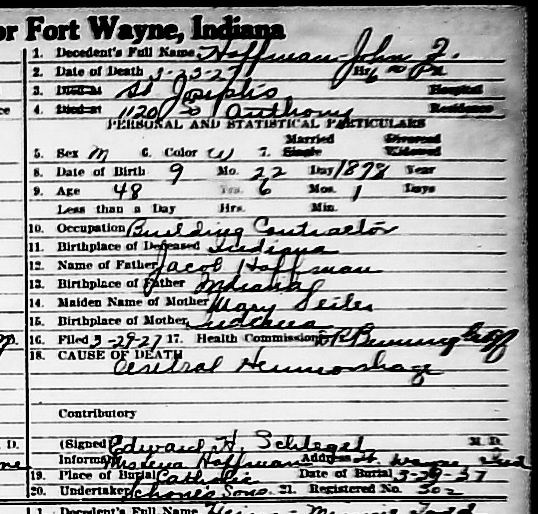 or Fort Wayne, Indiana
1. Decedent's Full Name Hoffman - John F.
2. Date of Death 3-23-27 Hr. 6 00 PM
3. Died at St Joseph's Hospital
4. Died at 1120 Anthony Residence
PERSONAL AND STATISTICAL PARTICULARS
Married Divorced
5. Sex M 6. Color W 7. Single Widowed
8. Date of Birth 9 Mo. 22 Day 1878 Year
9. Age 48 Yrs. 6 Mos. 1 Days
Less than a Day Hrs. Min.
10. Occupation Building Contractor
11. Birthplace of Deceased Indiana
12. Name of Father Jacob Hoffman
13. Birthplace of Father Indiana
14. Maiden Name of Mother Mary Seiler
15. Birthplace of Mother Indiana
16. Filed 3-29-27 17. Health Commissio
18. CAUSE OF DEATH
Cerebral Hemmorshage
Contributory
D. (Signed) Edward H. Schlegel M. D.
Informant Hoffman Address Ft Wayne Ind
19. Place of Burial Catholic Date of Burial
20. Undertaker Schone's Sons. 21. Registered No. 302
1. Decedent's Full Name